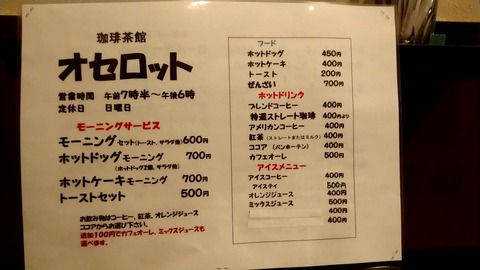 珈琲茶館
オセロット
営業時間 午前7時半～午後6時
定休日 日曜日
モーニングサービス
モーニングセット(トースト、サラダ他) 600円
ホットドッグモーニング 700円
(ホットドッグ2個、サラダ他)
ホットケーキモーニング 700円
トーストセット 500円
お飲み物はコーヒー、紅茶、オレンジジュース
ココアからお選び下さい。
追加100円でカフェオーレ、ミックスジュースも
選べます。
フード
ホットドッグ 450円
ホットケーキ 400円
トースト 200円
ぜんざい 700円
ホットドリンク
ブレンドコーヒー 400円
特選ストレート珈琲 400円より
アメリカンコーヒー 400円
紅茶 (ストレートまたはミルク) 400円
ココア (バンホーテン) 400円
カフェオーレ 500円
アイスメニュー
アイスコーヒー 400円
アイスティ 500円
オレンジジュース 400円
ミックスジュース 500円
400円
400円